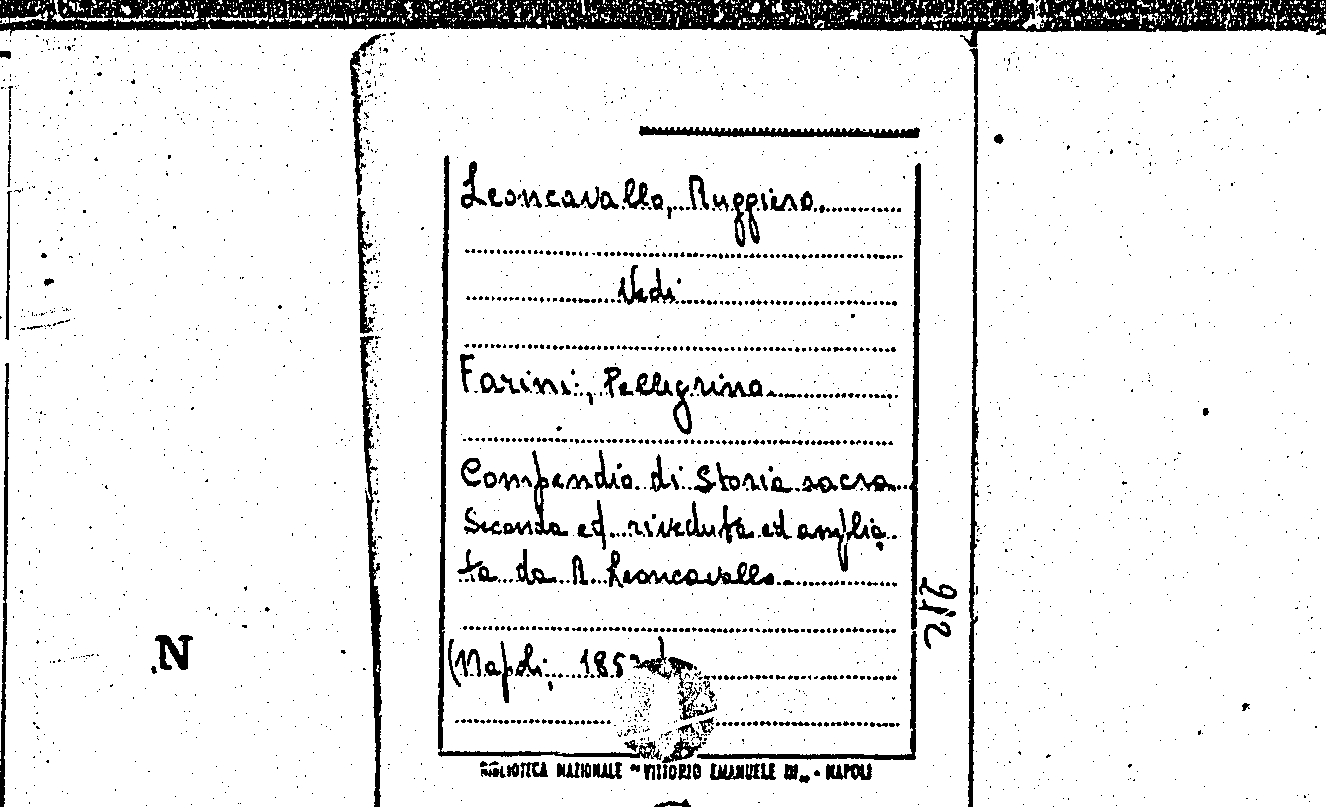 Leoncavallo, Ruggiero.
Vedi
Farini, Pellegrino
Compendio di Storia sacra
Seconda ed. riveduta ed amplia
ta da R. Leoncavallo
(Napoli, 185
BIBLIOTECA NAZIONALE "VITTORIO EMANUELE III" - NAPOLI
212
N